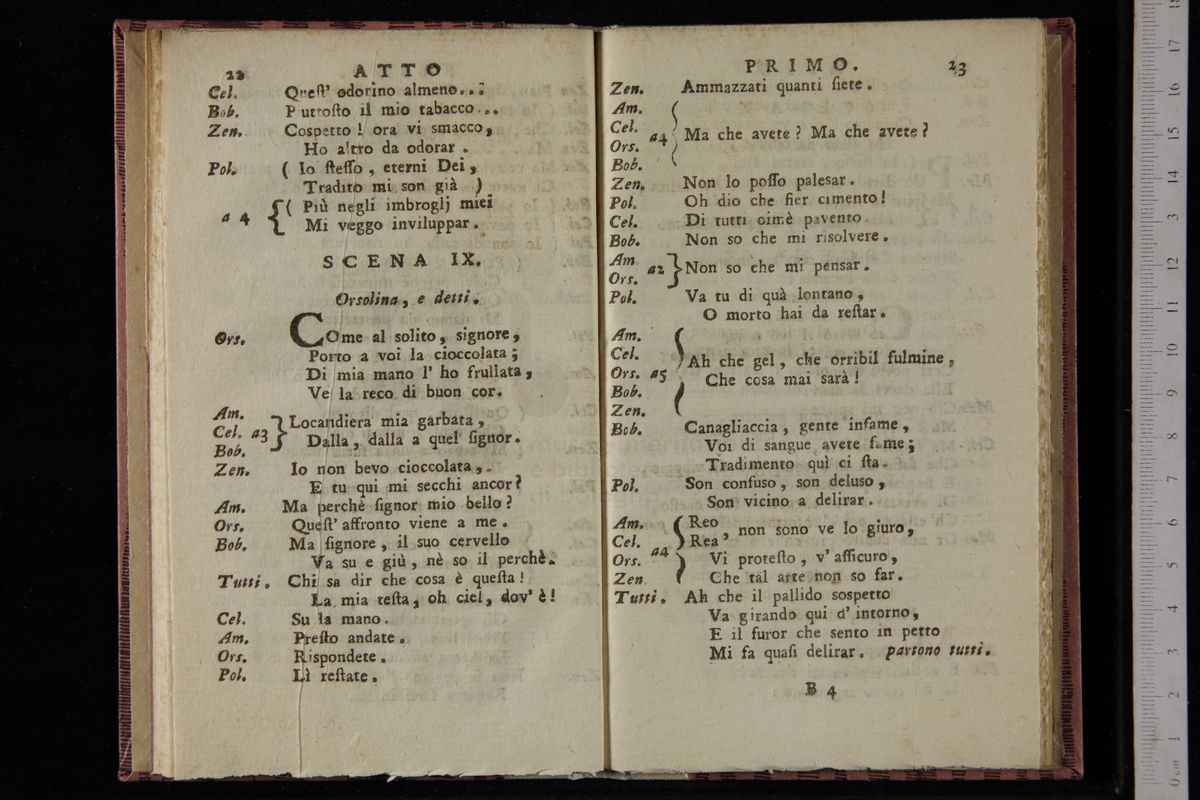 22 ATTO
Cel. Queſt' odorino almeno...
Bob. Puttoſto il mio tabacco...
Zen. Coſpetto! ora vi smacco,
Ho altro da odorar.
Pol. ( Io ſteſſo, eterni Dei,
Tradito mi son già )
a 4 ( Più negli imbroglj miei
Mi veggo inviluppar.
SCENA IX.
Orsolina, e detti.
Ors. COme al solito, signore,
Porto a voi la cioccolata;
Di mia mano l' ho frullata,
Ve la reco di buon cor.
Am.
Cel. a3 Locandiera mia garbata,
Bob. Dalla, dalla a quel ſignor.
Zen. Io non bevo cioccolata,
E tu qui mi secchi ancor?
Am. Ma perchè ſignor mio bello?
Ors. Queſt' affronto viene a me.
Bob. Ma ſignore, il suo cervello
Va su e giù, nè so il perchè.
Tutti. Chi sa dir che cosa è queſta!
La mia teſta, oh ciel, dov' è!
Cel. Su la mano.
Am. Preſto andate.
Ors. Rispondete.
Pol. Lì reſtate.
PRIMO. 23
Zen. Ammazzati quanti ſiete.
Am.
Cel.
Ors. a4 Ma che avete? Ma che avete?
Bob.
Zen. Non lo poſſo palesar.
Pol. Oh dio che fier cimento!
Cel. Di tutti oimè pavento.
Bob. Non so che mi risolvere.
Am
Ors. a2 Non so che mi pensar.
Pol. Va tu di quà lontano,
O morto hai da reſtar.
Am.
Cel. Ah che gel, che orribil fulmine,
Ors. a5 Che cosa mai sarà!
Bob.
Zen.
Bob. Canagliaccia, gente infame,
Voi di sangue avete fame;
Tradimento quì ci ſta.
Pol. Son confuso, son deluso,
Son vicino a delirar.
Am. Reo
Cel. Rea, non sono ve lo giuro,
Ors. a4 Vi proteſto, v' aſſicuro,
Zen Che tal arte non so far.
Tutti. Ah che il pallido sospetto
Va girando qui d' intorno,
E il furor che sento in petto
Mi fa quaſi delirar. partono tutti.
B 4